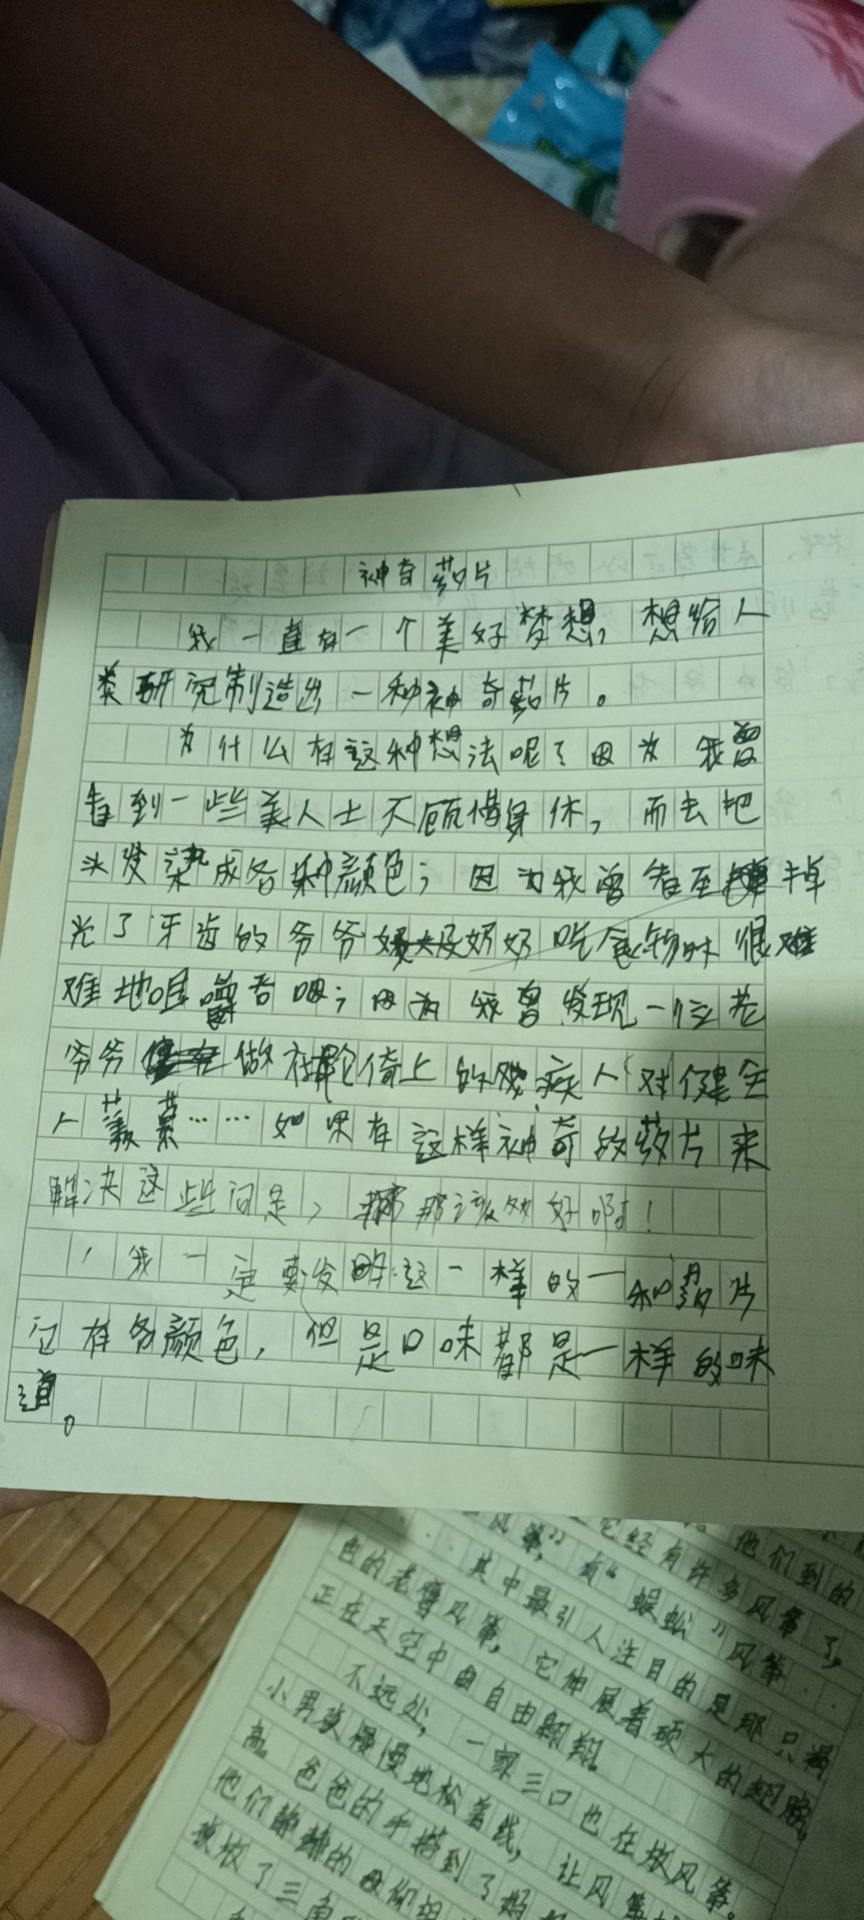 神奇药片
我一直有一个美好梦想，想给人
类研究制造出一种神奇药片。
为什么有这种想法呢？因为我曾
看到一些美人士不顾惜身体，而去把
头发染成各种颜色；因为我曾看至掉
光了牙齿的爷爷奶奶吃食物时很难
难地咀嚼吞咽；因为我曾发现一位老
爷爷做在轮椅上的残疾人对健全
人羡慕……如果有这样神奇的药片来
解决这些问是，那该多好啊！
我一定要发明这一样的一种药片
它有各颜色，但是口味都是一样的味
道。
风筝，有“蜈蚣”风筝……
它经有许多风筝了，
他们到的
其中最引人注目的是那只褐
色的老鹰风筝，它伸展着硕大的翅膀，
正在天空中自由翱翔。
不远处，一家三口也在放风筝。
小男孩慢慢地松着线，让风筝
高。爸爸的手搭到了妈
他们静静的
放了三角